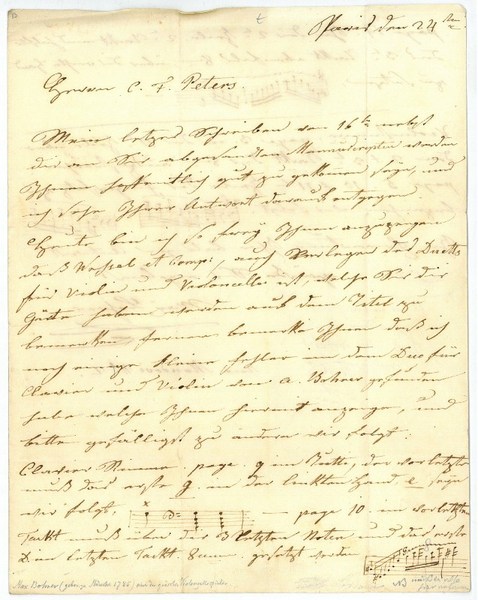 Paris den 24ten
Herrn C. F. Peters.
Mein letztes Schreiben von 16ten nebst
die an Sie abgesandten Manuscripte werden
Ihnen hoffentlich gut zu gekommen seyn, und
ich sehe Ihrer Antwort daraus entgegen
Heute bin ich so frey Ihnen anzuzeigen
daß Wessel et Comp: auch Verleger des Duetts
für Violin und Violoncelle ist, welche Sie die
Güte haben werden auf dem Titel zu
bemerken, ferner bemerke Ihnen daß ich
noch einige kleine Fehler in dem Duo für
Clavier und Violin von A. Bohrer gefunden
habe welche Ihnen hiermit anzeige, und
bitte gefälligst zu ändern wie folgt:
Clavier Stimme page. 9 im Takte, der vorletzte
muß das erste g. in der linken Hand e seyn
wie folgt, — page 10 im vorletzten
Takt muß über die 3 letzten Noten und das erste
den letzten Takt 8va. gesetzt werden
Max Bohrer (geb. 1785)
NB